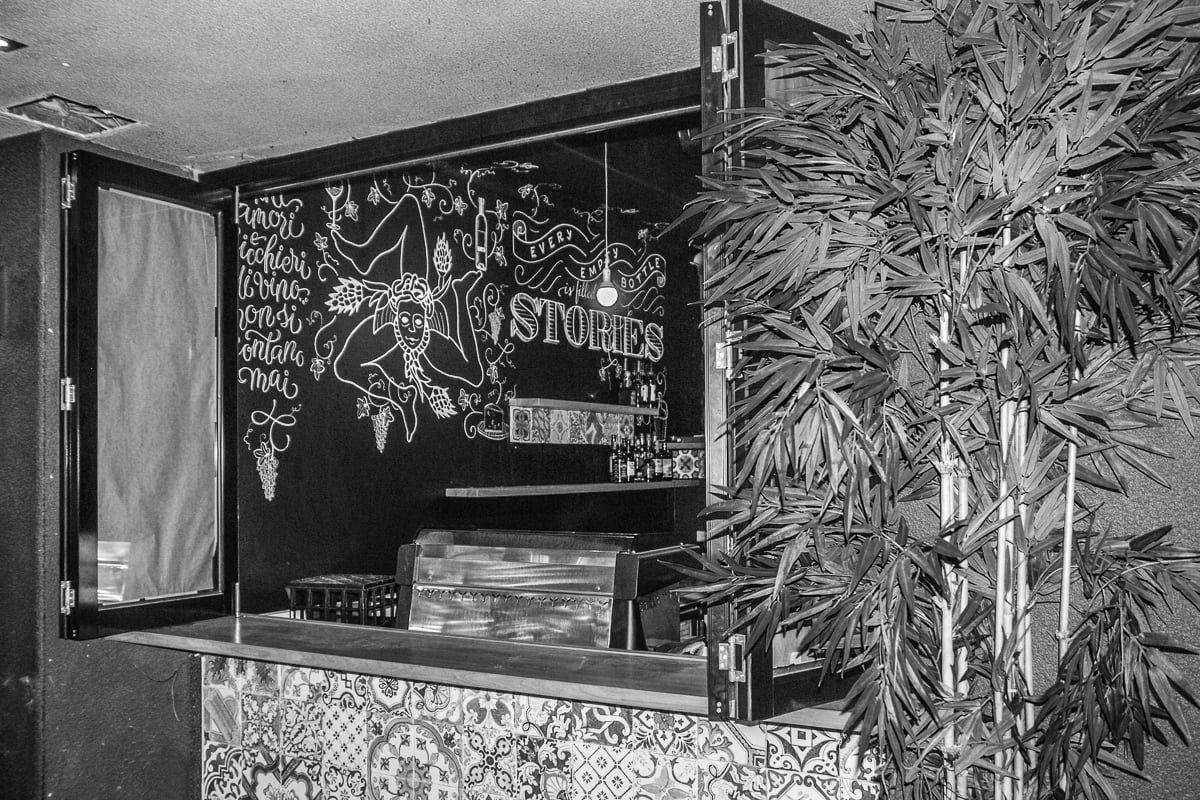 amori
e
icchieri
di vino
non si
ontano
mai
EVERY
EMPTY
BOTTLE
is filled
STORIES